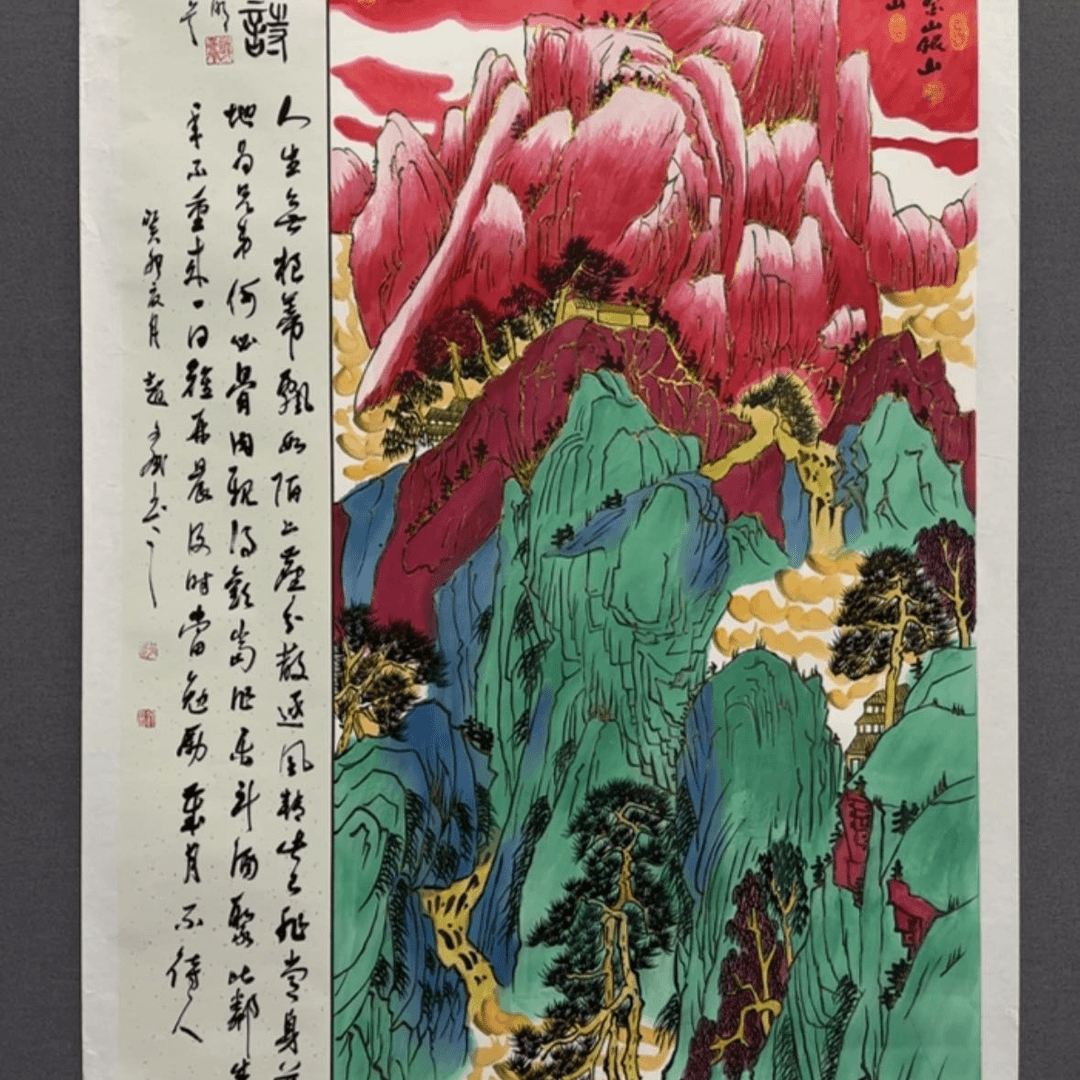 金山銀山
山
詩
明
人生無根蒂飄如陌上塵分散逐風轉此已非常身
地為兄弟何必骨肉親得歡當作樂斗酒聚比鄰
年不重來一日難再晨及時當勉勵歲月不待人
癸卯夏月